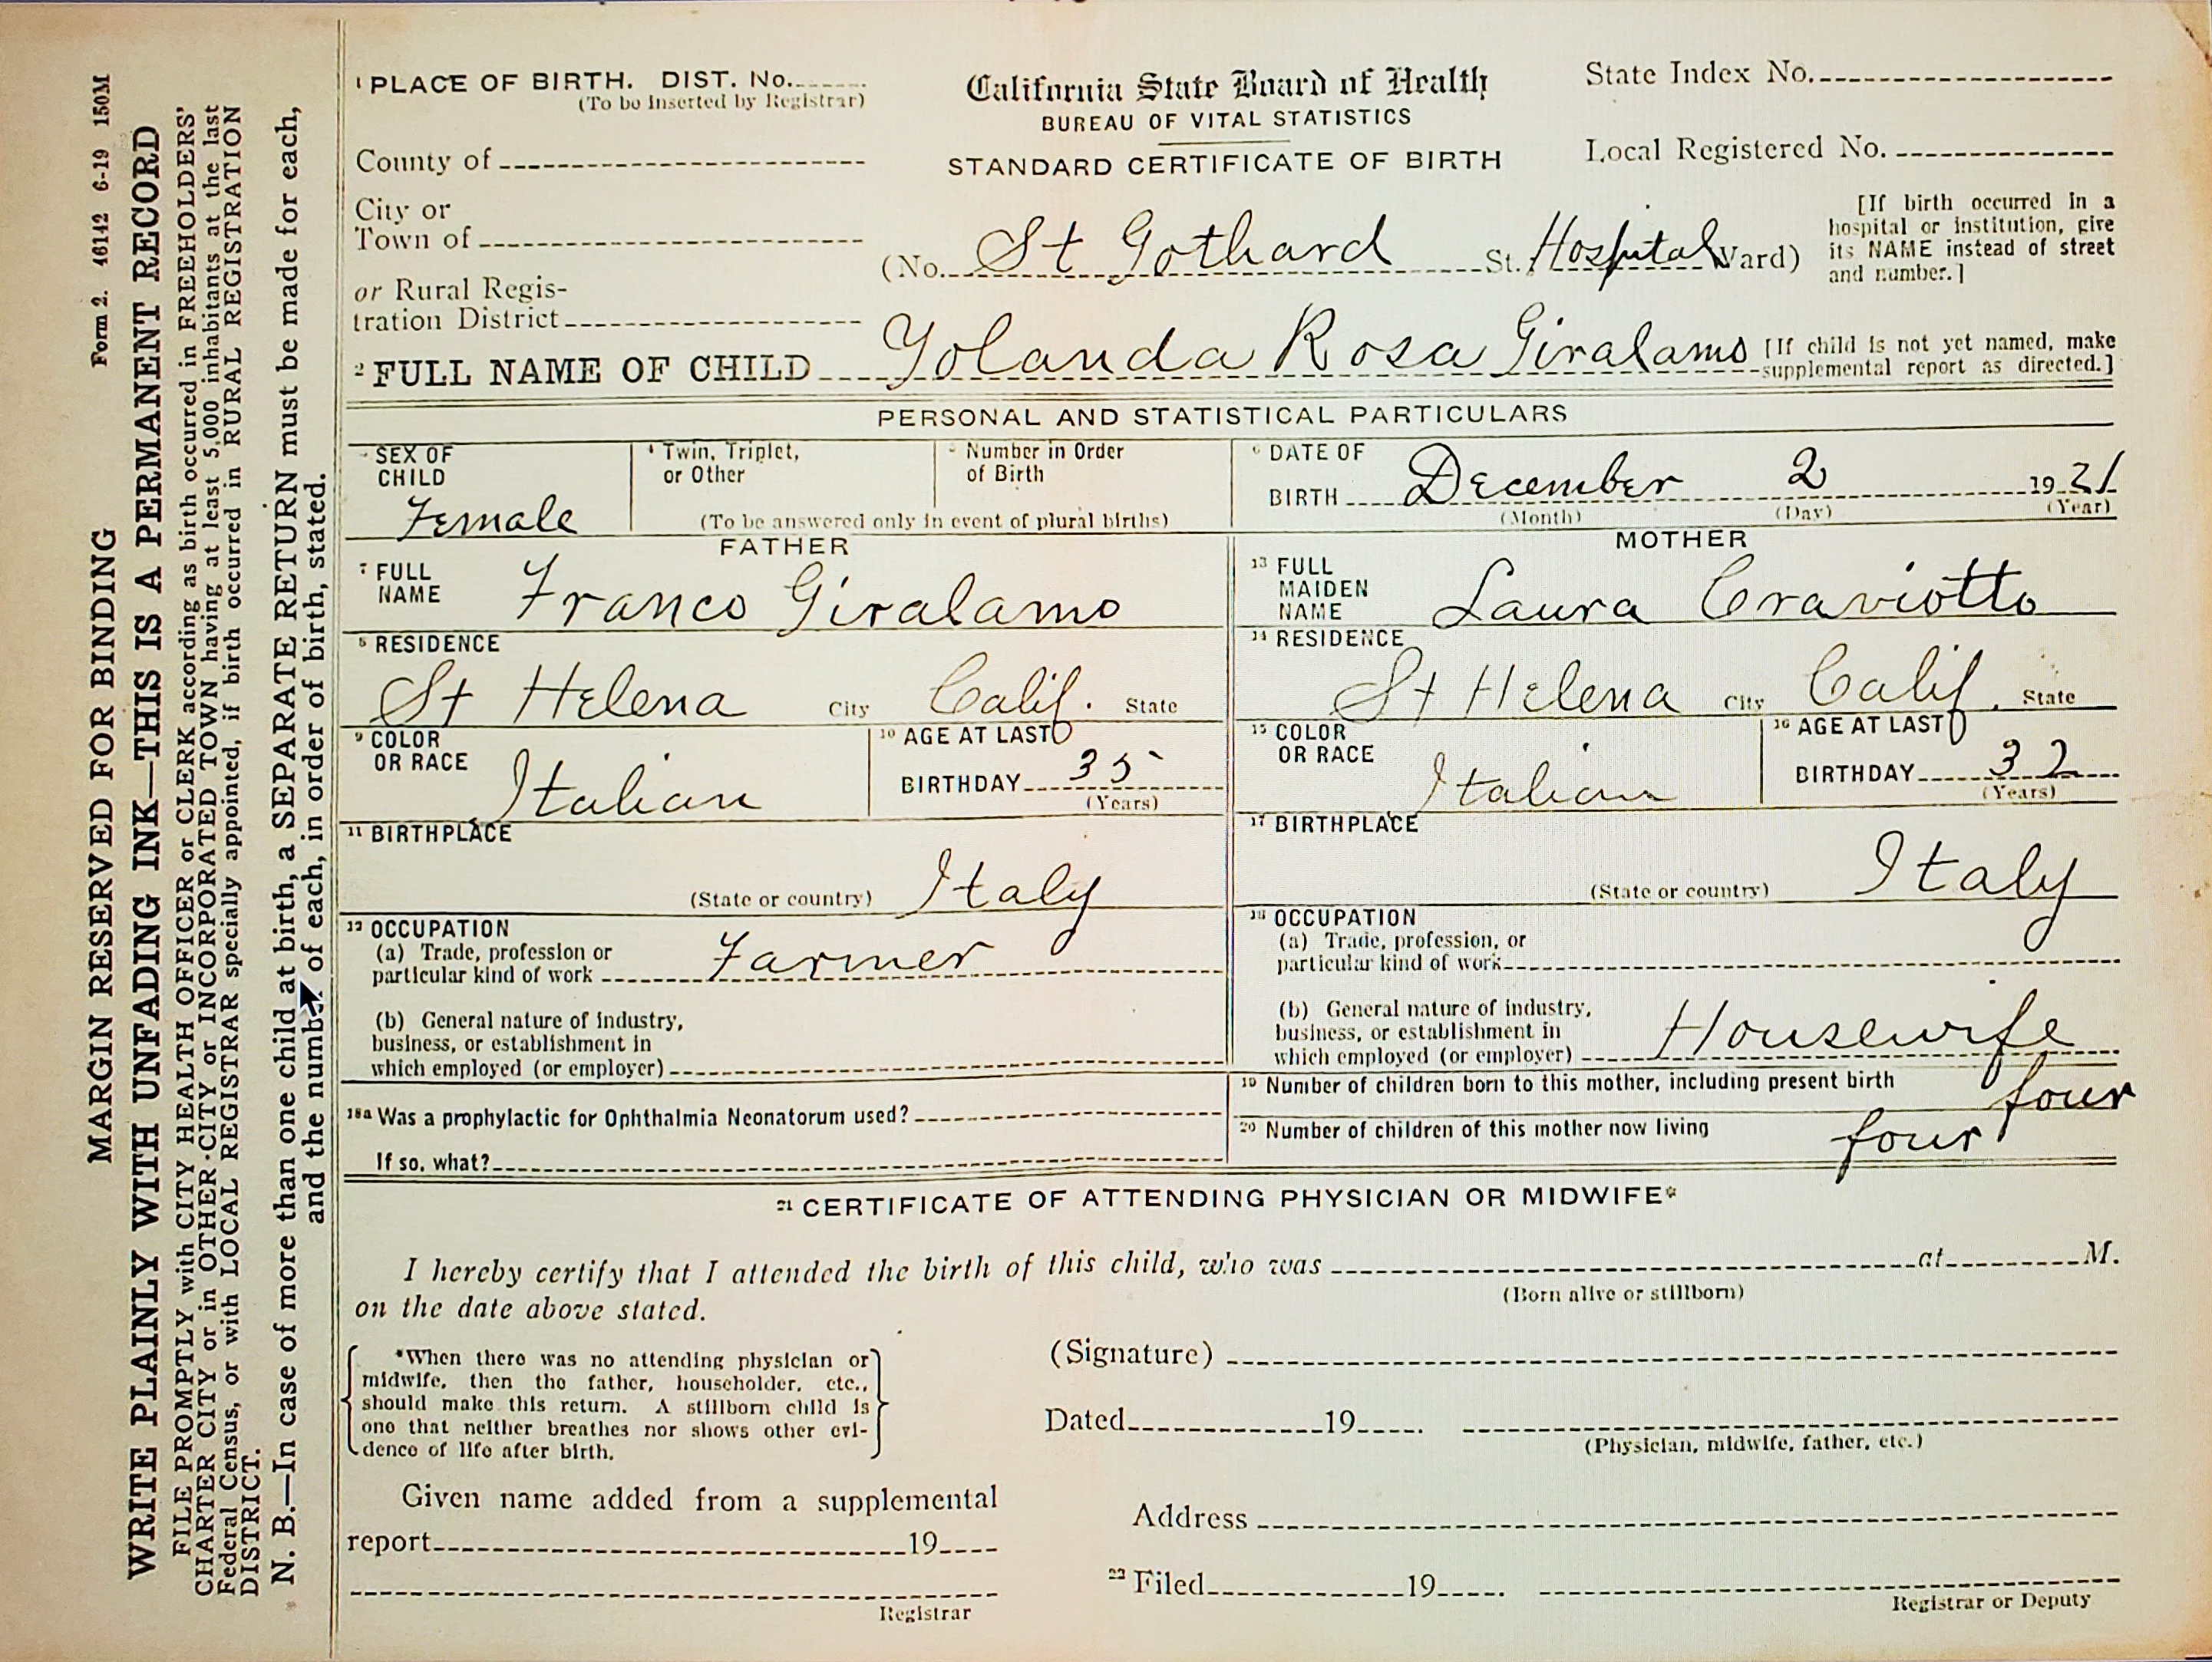 MARGIN RESERVED FOR BINDING Form 2. 46142 6-19 150M
WRITE PLAINLY WITH UNFADING INK—THIS IS A PERMANENT RECORD
FILE PROMPTLY with CITY HEALTH OFFICER or CLERK according as birth occurred in FREEHOLDERS'
CHARTER CITY or in OTHER CITY or INCORPORATED TOWN having at least 5,000 inhabitants at the last
Federal Census, or with LOCAL REGISTRAR specially appointed, if birth occurred in RURAL REGISTRATION
DISTRICT.
N. B.—In case of more than one child at birth, a SEPARATE RETURN must be made for each,
and the number of each, in order of birth, stated.
1 PLACE OF BIRTH. DIST. No.
(To be Inserted by Registrar)
County of
City or
Town of
or Rural Regis-
tration District
California State Board of Health
BUREAU OF VITAL STATISTICS
STANDARD CERTIFICATE OF BIRTH
State Index No.
Local Registered No.
(No. St Gothard St. Hospital Ward)
[If birth occurred in a
hospital or institution, give
its NAME instead of street
and number.]
2 FULL NAME OF CHILD Yolanda Rosa Giralamo
[If child is not yet named, make
supplemental report as directed.]
PERSONAL AND STATISTICAL PARTICULARS
SEX OF
CHILD
Female
4 Twin, Triplet,
or Other
5 Number in Order
of Birth
(To be answered only in event of plural births)
6 DATE OF
BIRTH December 2 1921
(Month) (Day) (Year)
FATHER
7 FULL
NAME Franco Giralamo
8 RESIDENCE
St Helena City Calif. State
9 COLOR
OR RACE Italian
10 AGE AT LAST
BIRTHDAY 35
(Years)
11 BIRTHPLACE
(State or country) Italy
12 OCCUPATION
(a) Trade, profession or
particular kind of work Farmer
(b) General nature of industry,
business, or establishment in
which employed (or employer)
MOTHER
13 FULL
MAIDEN
NAME Laura Craviotto
14 RESIDENCE
St Helena City Calif. State
15 COLOR
OR RACE Italian
16 AGE AT LAST
BIRTHDAY 32
(Years)
17 BIRTHPLACE
(State or country) Italy
18 OCCUPATION
(a) Trade, profession, or
particular kind of work
(b) General nature of industry,
business, or establishment in
which employed (or employer) Housewife
18a Was a prophylactic for Ophthalmia Neonatorum used?
If so, what?
19 Number of children born to this mother, including present birth four
20 Number of children of this mother now living four
21 CERTIFICATE OF ATTENDING PHYSICIAN OR MIDWIFE*
I hereby certify that I attended the birth of this child, who was at M.
(Born alive or stillborn)
on the date above stated.
*When there was no attending physician or
midwife, then the father, householder, etc.,
should make this return. A stillborn child is
one that neither breathes nor shows other evi-
dence of life after birth.
(Signature)
Dated 19
(Physician, midwife, father, etc.)
Given name added from a supplemental
report 19
Registrar
Address
22 Filed 19
Registrar or Deputy